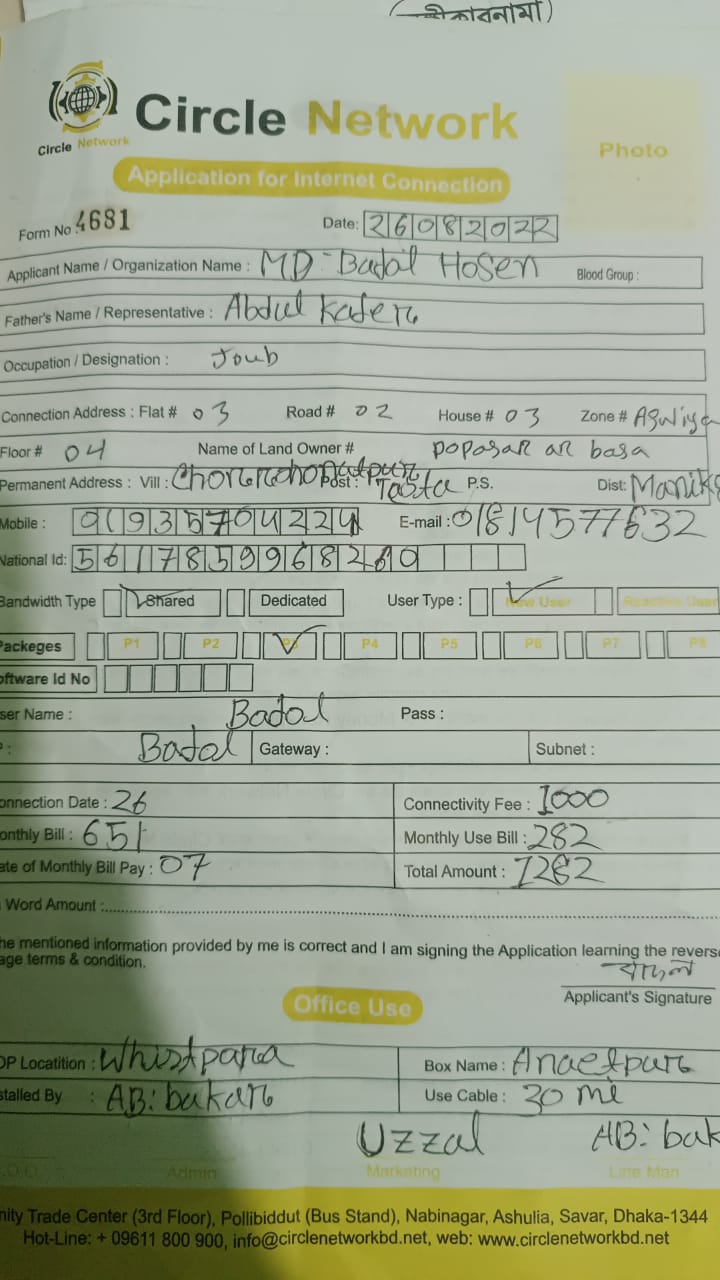 (স্বীকারনামা)
Circle Network
Circle Network
Photo
Application for Internet Connection
Form No 4681
Date: 26082022
Applicant Name / Organization Name : MD Badal Hosen Blood Group :
Father's Name / Representative : Abdul Kader
Occupation / Designation : Joub
Connection Address : Flat # 03 Road # 02 House # 03 Zone #
Floor # 04 Name of Land Owner # poposar ar basa
Permanent Address : Vill : Post : P.S. Dist: Manik
Mobile : E-mail : 01814577632
National Id:
Bandwidth Type Shared Dedicated User Type : New User Reactive User
Packeges P1 P2 P3 P4 P5 P6 P7 P8
oftware Id No
ser Name : Badol Pass :
P : Badol Gateway : Subnet :
onnection Date : 26 Connectivity Fee : 1000
onthly Bill : 651 Monthly Use Bill : 282
ate of Monthly Bill Pay : 07 Total Amount : 1282
Word Amount :
he mentioned information provided by me is correct and I am signing the Application learning the reverse
age terms & condition.
বাদল
Applicant's Signature
Office Use
OP Locatition : Box Name :
stalled By : AB: bakar Use Cable : 30 mi
Uzzal AB: bak
Admin Marketing Line Man
nity Trade Center (3rd Floor), Pollibiddut (Bus Stand), Nabinagar, Ashulia, Savar, Dhaka-1344
Hot-Line: + 09611 800 900, info@circlenetworkbd.net, web: www.circlenetworkbd.net